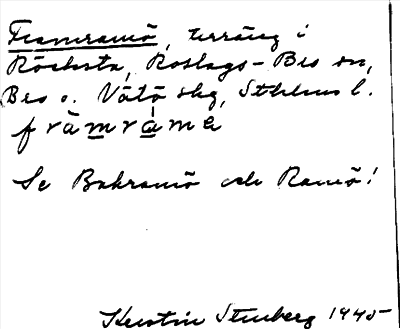 Framramö, terräng i
Röksta, Roslags-Bro sn,
Bro o. Vätö skg, Sthlms l.
fràmràmä
Se Bakramö och Ramö!
Kerstin Stenberg 1945